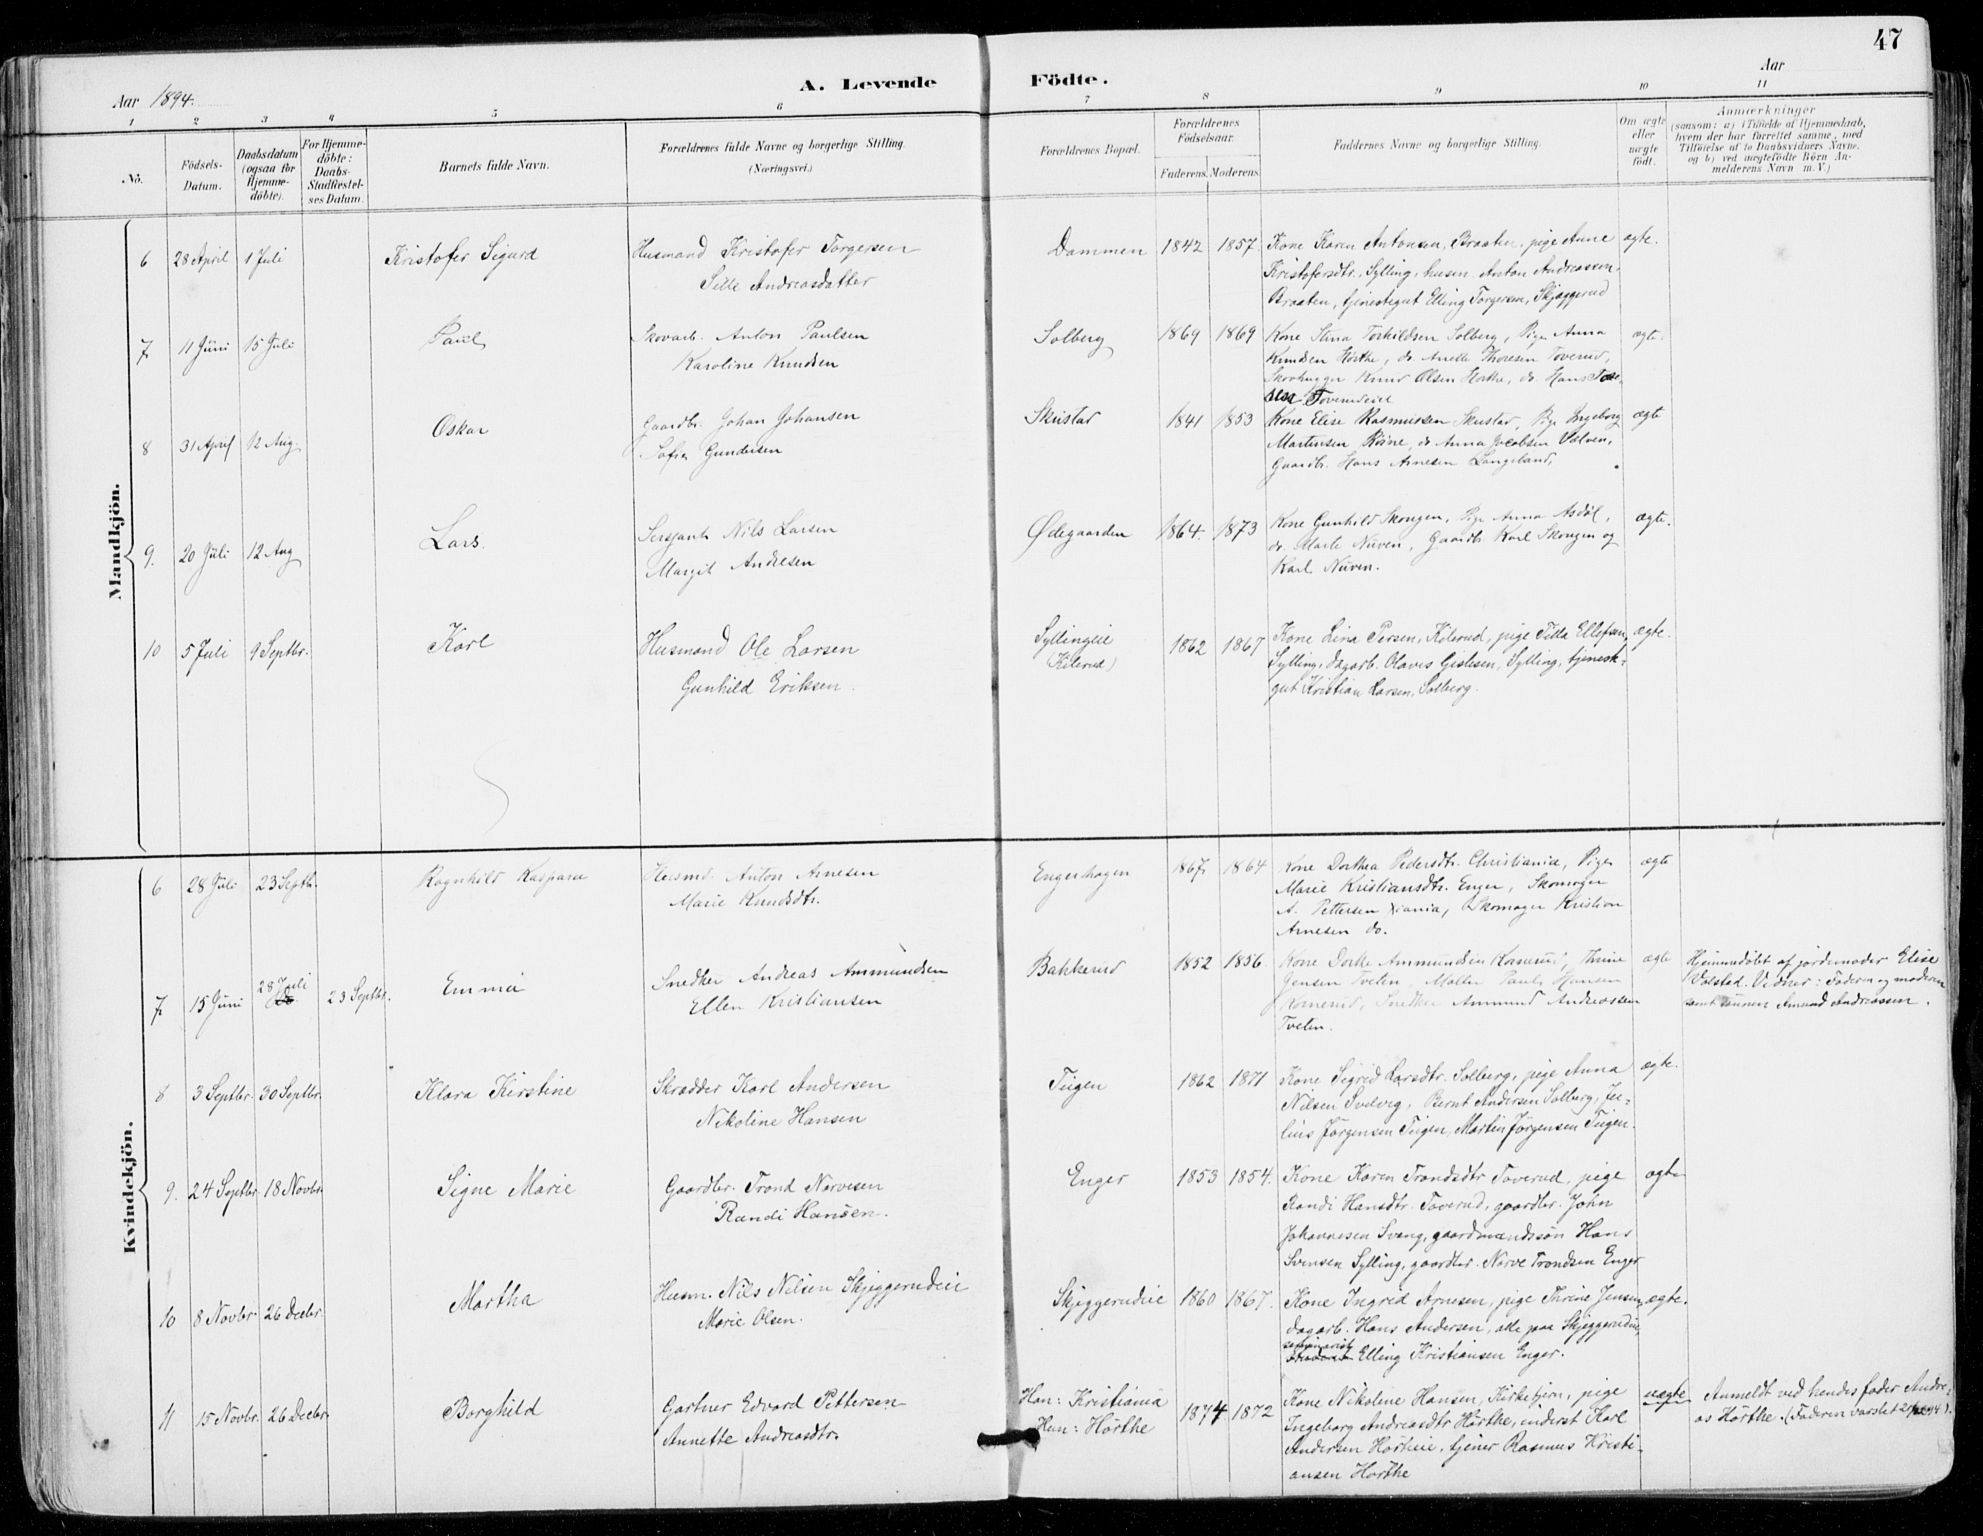 47
Aar 1894.
A. Levende Födte.
Aar
1 2 3 4 5 6 7 8 9 10 11
No.
Födsels-Datum.
Daabsdatum (ogsaa for Hjemme-döbte).
For Hjemme-döbte: Daabs-Stadfæstel-ses Datum.
Barnets fulde Navn.
Forældrenes fulde Navne og borgerlige Stilling. (Næringsvei.)
Forældrenes Bopæl.
Forældrenes Födselsaar.
Faderens. Moderens.
Faddernes Navne og borgerlige Stilling.
Om ægte eller uægte födt.
Anmærkninger
(saasom: a) i Tilfælde af Hjemmedaab,
hvem der har forrettet samme, med
Tilföielse af to Daabsvidners Navne,
og b) ved uægtefödte Börn An-
melderens Navn m. V.)
Mandkjön.
6 28 April 1 Juli Kristofer Sigurd Husmand Kristofer Torgersen Dammen 1842 1857. Kone Karen Antonsen, Braaten, pige Anne ægte.
Sille Andreasdatter Kristofersdtr. Sylling, husm. Anton Andreassen,
Braaten, tjenestegut Elling Torgersen, Skjæggerud
7 11 Juni 15 Juli Paul Skovarb. Anton Paulsen Solberg 1869 1869 Kone Stina Torkildsen Solberg, Pige Anna ægte.
Karoline Knudsen Knudsen Hørthe, do. Anette Thoresen Toverud,
Skovhugger Knud Olsen Hørthe, do. Hans
Toverudeiet
8 31 April 12 Aug. Oskar Gaardbr. Johan Johansen Skustad 1841 1853 Kone Elise Rasmussen Skustad, Pige Ingeborg ægte
Sofie Gundersen Martinsen, do. Anna Jacobsen
Gaardbr. Hans Arnesen Langeland,
9. 20 Juli 12 Aug Lars. Sersjant Nils Larsen Ødegaarden 1864. 1873 Kone Gunhild Skongen, Pige Anna Asdøl, ægte.
Margit Andresen do. Marte Nuven, Gaardbr. Karl Skongen og
Karl Nuven.
10 5 Juli 9 Septbr. Karl Husmand Ole Larsen Syllingeie 1862 1867 Kone Lina Persen, Kilerud, pige Tilla Ellefsen, ægte.
Gunhild Eriksen. (Kilerud) Sylling, dagarb. Olaves Gislesen, Sylling, tjeneste-
gut Kristian Larsen, Solberg.
Kvindekjön.
6 28 Juli 23 Septbr. Ragnhild Kaspara Husmd. Anton Arnesen Engerhagen 1867 1864 Kone Dorthea Pedersdtr. Christiania, Pige ægte
Marie Knudsdtr. Marie Kristiansdtr. Enger, Skomager
A. Pettersen Xiania, Skomager Kristian
Arnesen do.
7 15 Juni 28 Juli 23 Septbr. Emma Snedker Andreas Ammundsen Bakkerud 1852 1856. Kone Dorthe Ammundsen, Thrine ægte Hjemmedøbt af jordemoder Elise
Ellen Kristiansen Jensen Tveten, Møller Paul Hansen Vølstad. Vidner: Faderen og moderen
Snedker Ammund Andreassen samt Amund Andreassen.
Tveten.
8 3 Septbr. 30 Septbr. Klara Kirstine Skrædder Karl Andersen Tugen 1862 1871 Kone Sigrid Larsdtr. Solberg, pige Anna ægte.
Nikoline Hansen Nilsen Svelvig, Bernt Andersen Solberg, Ju-
lius Jørgensen Tugen, Martin Jørgensen Tugen.
9. 24 Septbr. 18 Novbr. Signe Marie Gaardbr. Trond Narvesen Enger 1853 1854. Kone Karen Trondsdtr Toverud, pige ægte
Randi Hansen. Randi Hansdtr. Toverud, gaardbr. John
Johannesen Svang, gaardmandssøn Hans
Svensen Sylling, gaardbr. Narve Trondsen Enger
10 8 Novbr. 26 Decbr. Martha Husm. Nils Nilsen Skjeggerudeie Skjeggerudeie 1860 1867. Kone Ingrid Arnesen, pige Thrine Jensen, ægte.
Marie Olsen. dagarb. Hans Andersen, alle paa Skjeggerudeie,
seminarist Elling Kristiansen Enger.
11 15 Novbr. 26 Decbr. Borghild Gartner Edvard Pettersen Han: Kristiania 1874 1872 Kone Nikoline Hansen, Kirkebjørn, pige uægte Anmeldt ved hendes fader Andre-
Annette Andreasdtr. Hun: Hørthe Ingeborg Andreasdtr Hørthe, inderst Karl as Hørthe. (Faderen varslet
Andersen Hørtheie, tjener Rasmus Kristi-
ansen Hørthe